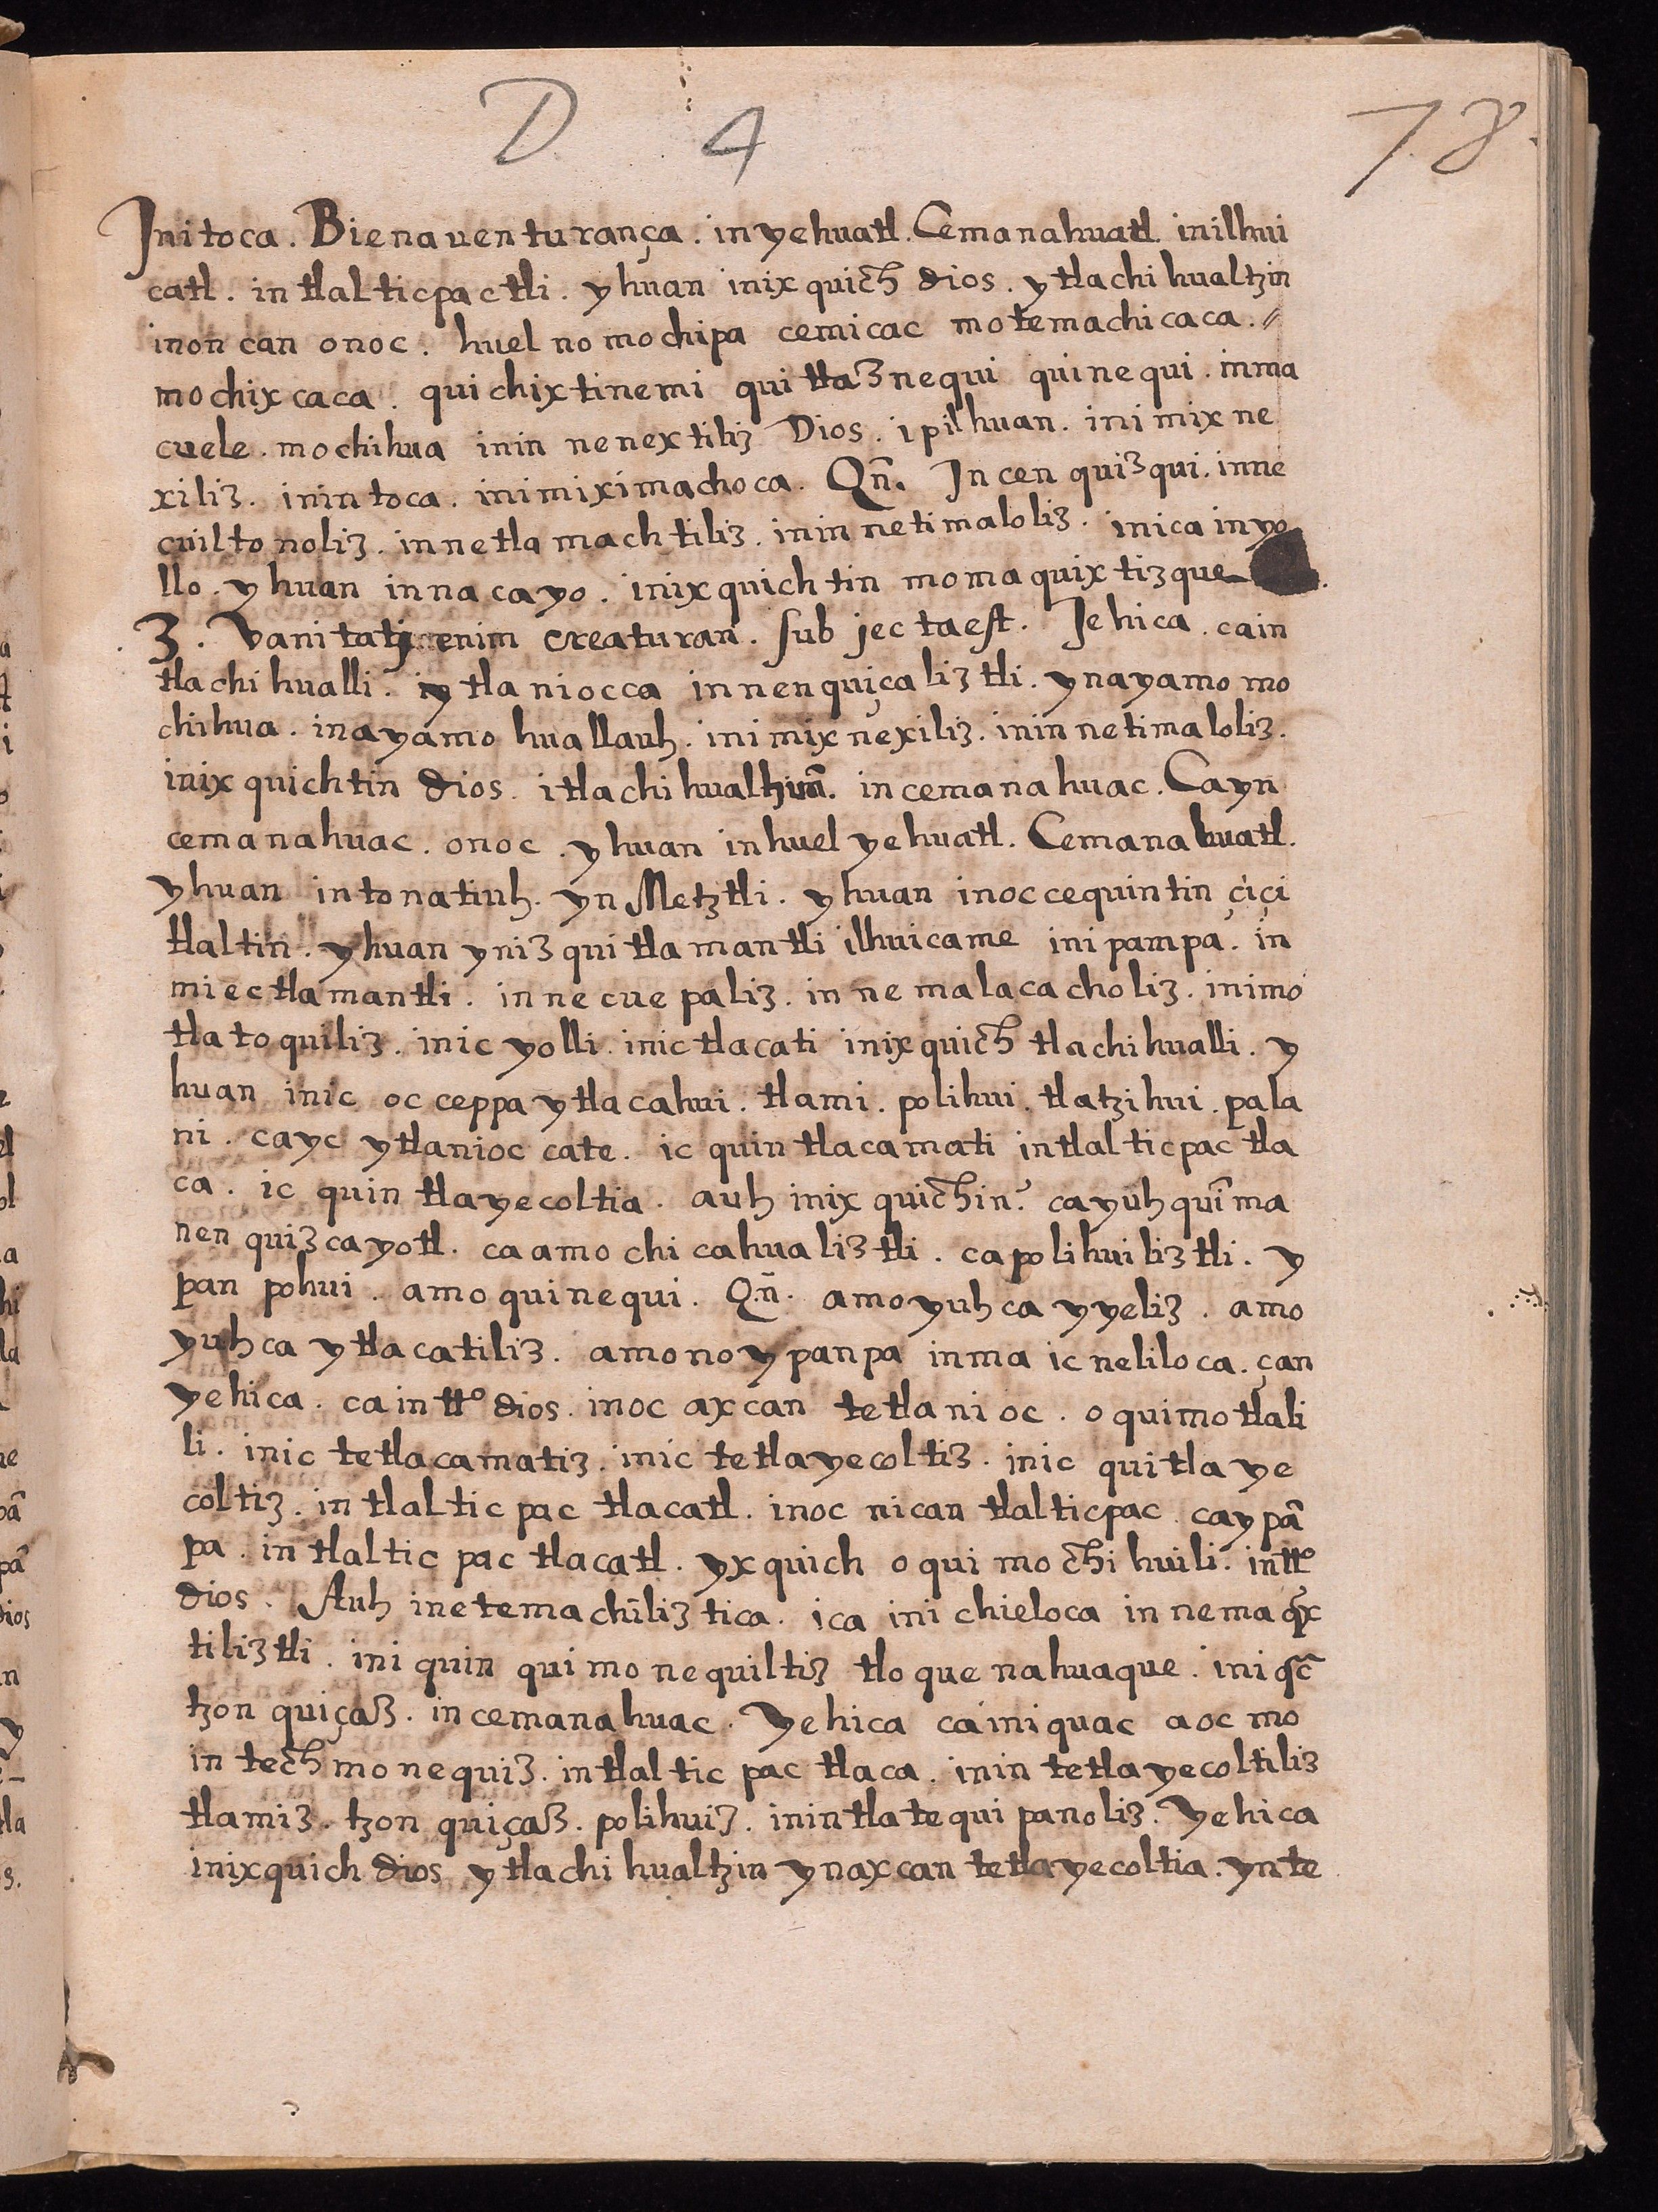 D 4 78.
Jni toca. Bienauenturança. inyehuatl. Cemanahuatl. inilhui
catl. in tlalticpactli. yhuan inixquich dios. ytlachihualtzin
inon can onoc. huel no mochipa cemicac motemachicaca. //
mochixcaca. quichixtinemi quittaznequi quinequi. inma
cuele. mochihua inin nenextiliz Dios. ipilhuan. inimixne
xiliz. inintoca. inimiximachoca. Qn̄. In cenquizqui. inne
cuiltonoliz. innetlamachtiliz. inin netimaloliz. inica inyo
llo. yhuan innacayo. inixquichtin momaquixtizque
3. Vanitati enim creaturan. subjectaest. Jehica. cain
tlachihualli. ytlaniocca innenquiçaliztli. ynayamo mo
chihua. inayamo huallauh. inimixnexiliz. inin netimaloliz.
inixquichtin dios. itlachihualhuā. in cemanahuac. Cayn
cemanahuac. onoc. yhuan inhuel yehuatl. Cemanahuatl.
yhuan intonatiuh. yn Metztli. yhuan inoccequintin çiçi
tlaltin. yhuan ynizquitlamantli ilhuicame inipampa. in
miectlamantli. innecuepaliz. in nemalacacholiz. inimo
tlatoquiliz. inic yolli. inic tlacati inixquich tlachihualli. y
huan inic occeppa ytlacahui. tlami. polihui. tlatzihui. pala
ni. cayc ytlanioc cate. ic quintlacamati intlalticpactla
ca. ic quintlayecoltia. auh inixquichin? cayuhquīma
nenquizcayotl. caamo chicahualiztli. capolihuiliztli. y
pan pohui. amo quinequi. Qn̄. amoyuhca yyeliz. amo
yuhca ytlacatiliz. amono ypanpa inma icneliloca. çan
yehica. ca in ttº dios. inoc axcan tetlanioc. oquimotlali
li. inic tetlacamatiz. inic tetlayecoltiz. inic quitlaye
coltiz. in tlalticpac tlacatl. inoc nican tlalticpac. caypā
pa. in tlalticpac tlacatl. yxquich oquimochihuili. inttº
dios. Auh inetemachiliztica. ica inichieloca innemaqx̄
tiliztli. iniquin quimonequiltiz tloque nahuaque. iniqc̄
tzonquiçaz. incemanahuac. Yehica cainiquac aocmo
intech monequiz. intlalticpac tlaca. inin tetlayecoltiliz
tlamiz. tzonquiçaz. polihuiz. inintlatequipanoliz. Yehica
inixquich dios ytlachihualtzin ynaxcan tetlayecoltia. ynte